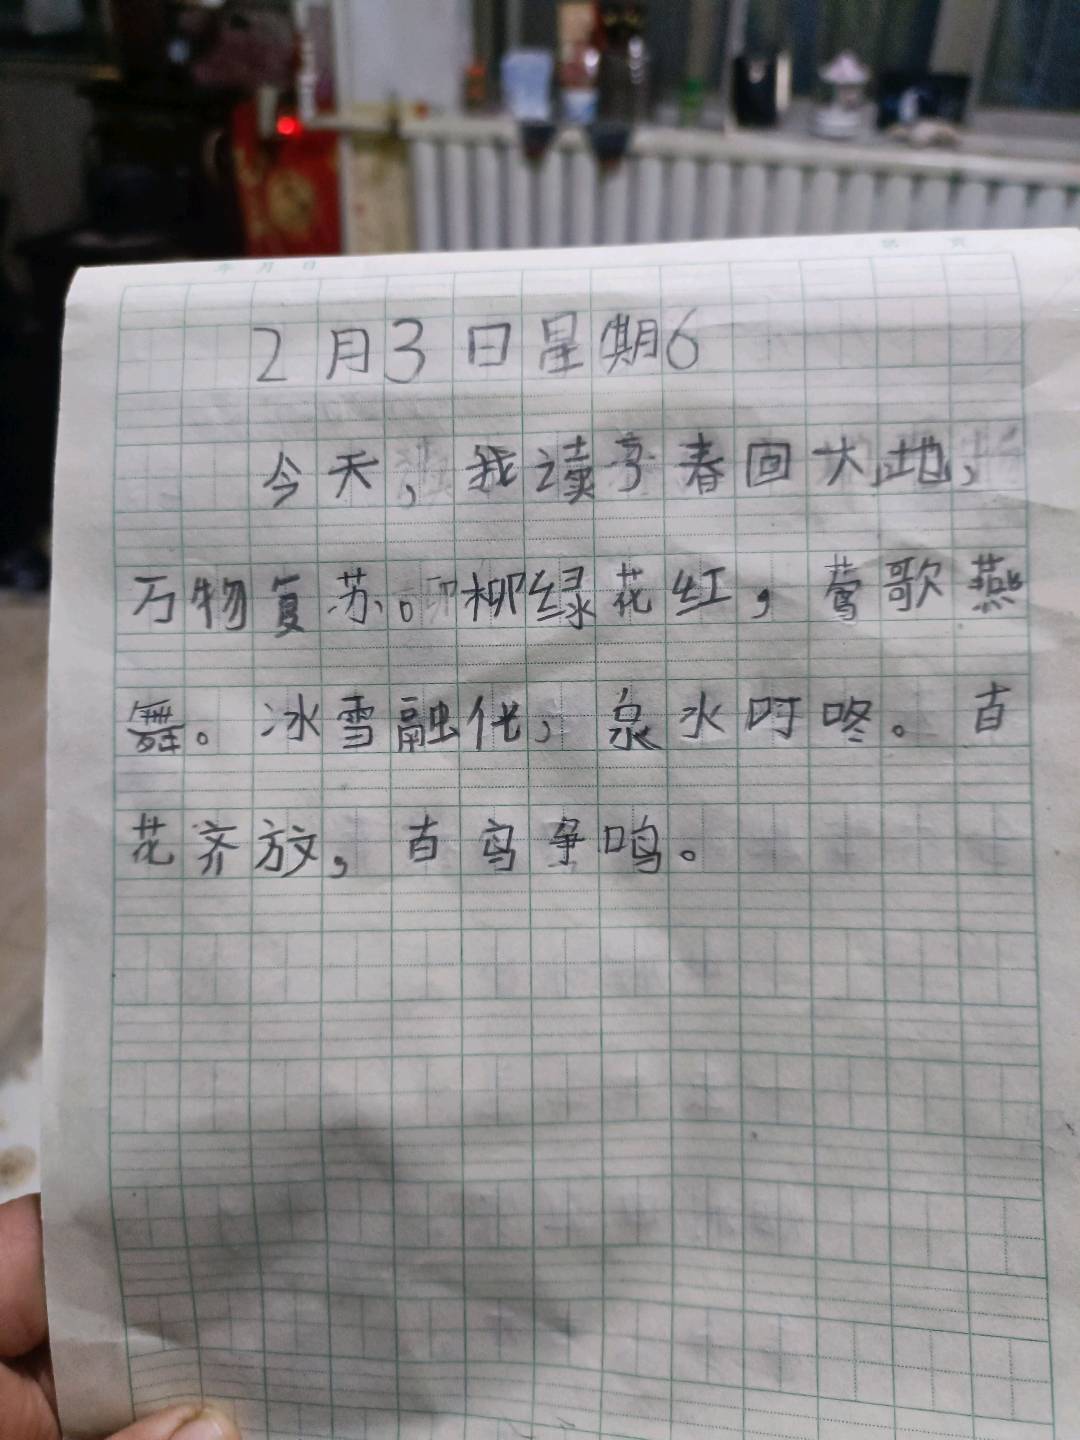 年 月 日
2月3日星期6
今天,我读了春回大地,
万物复苏。柳绿花红,莺歌燕
舞。冰雪融化,泉水叮咚。百
花齐放,百鸟争鸣。